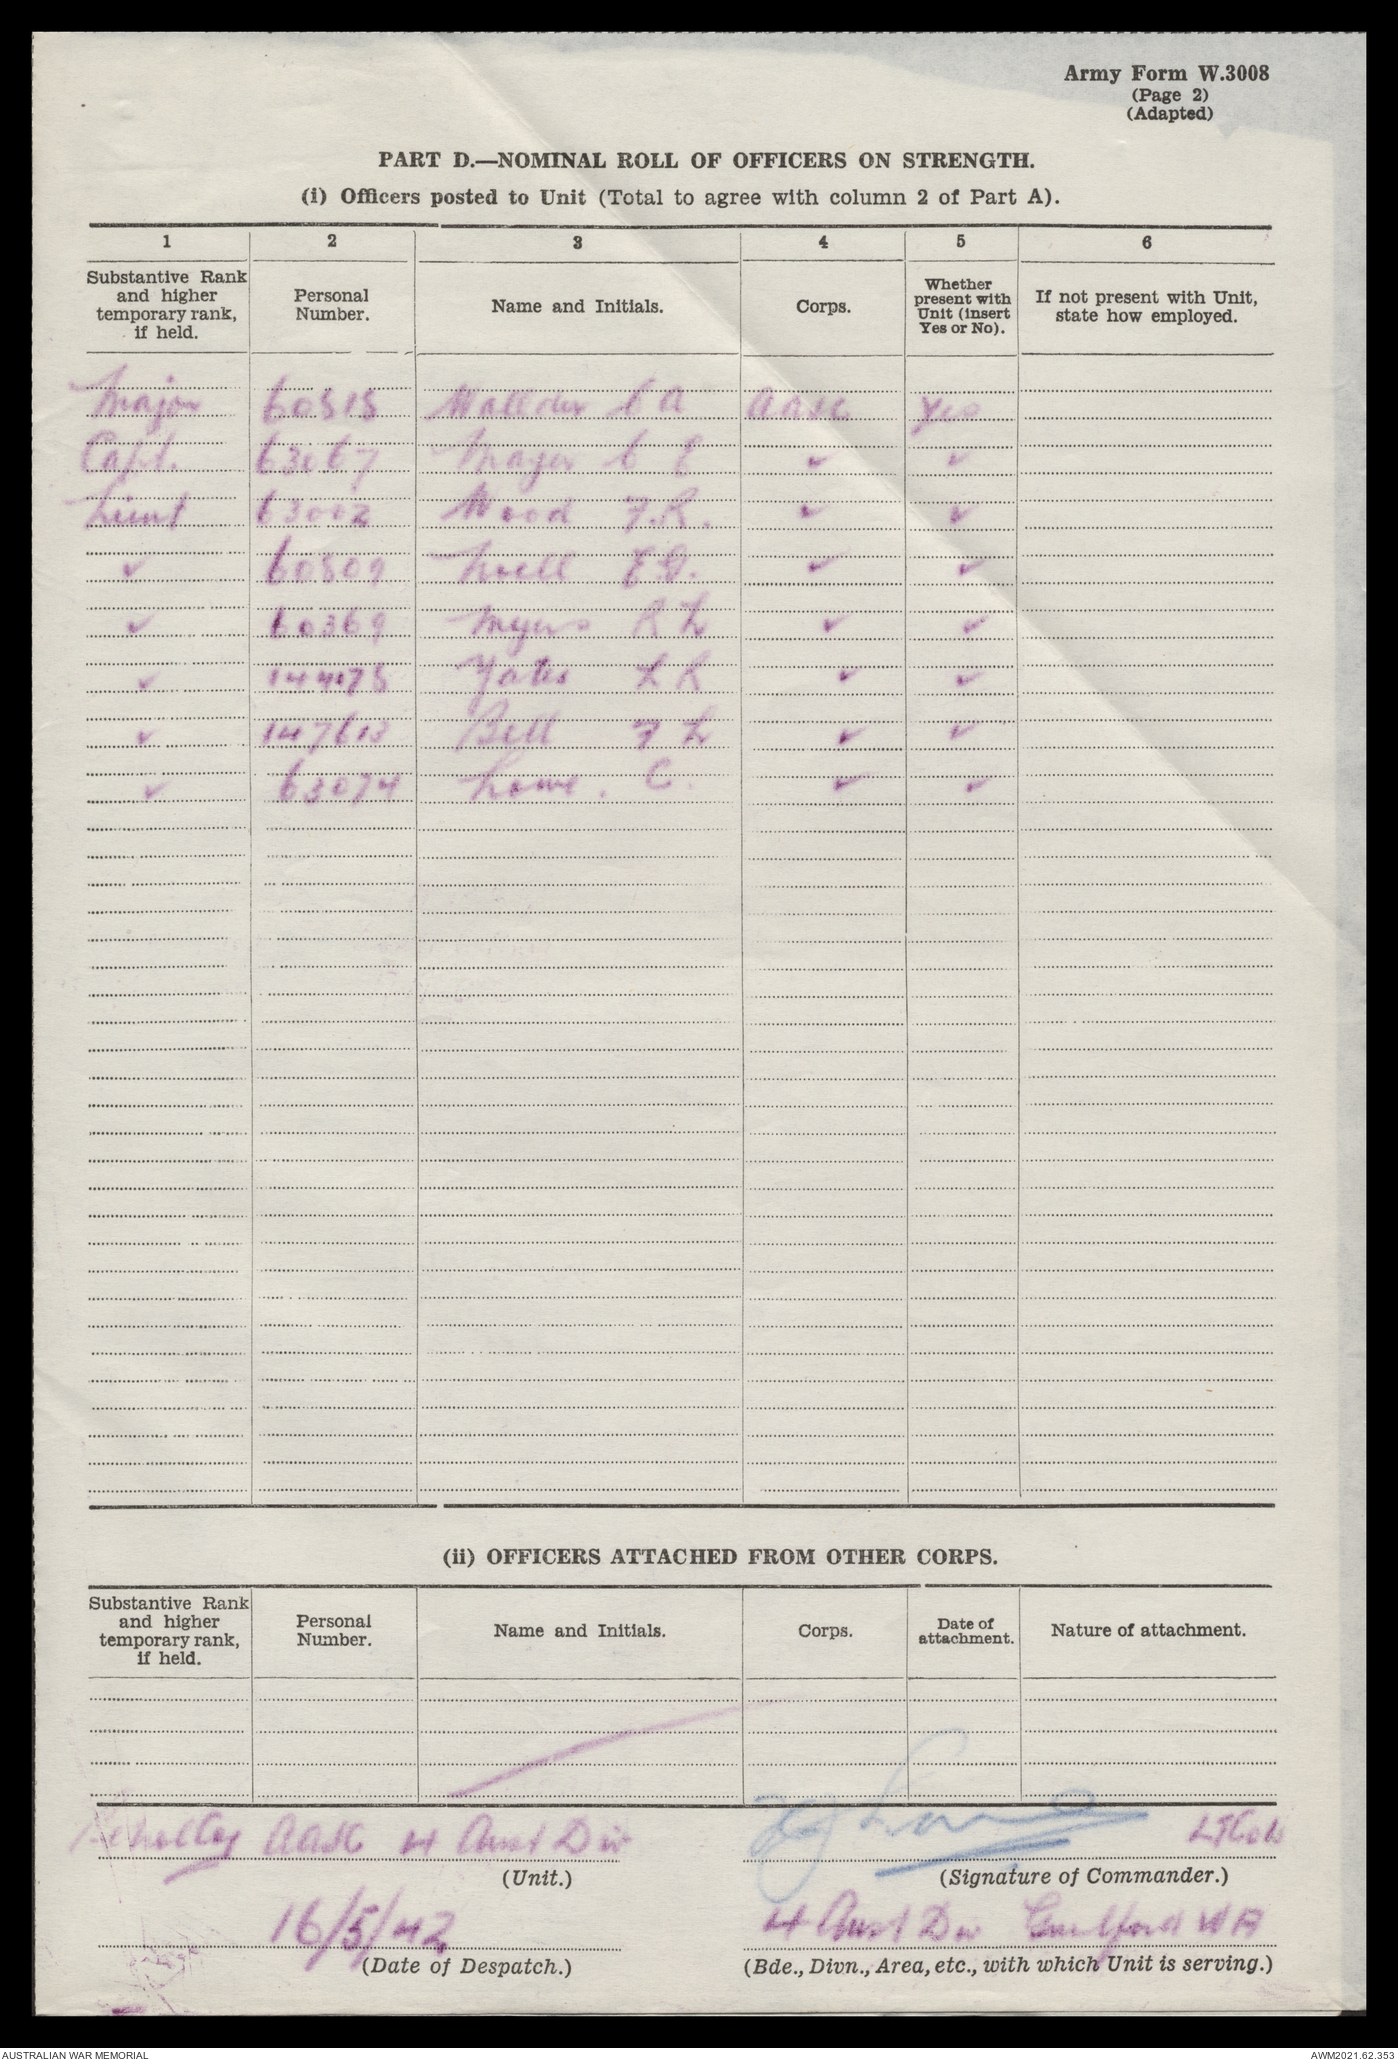 Army Form W.3008
(Page 2)
(Adapted)
PART D.—NOMINAL ROLL OF OFFICERS ON STRENGTH.
(i) Officers posted to Unit (Total to agree with column 2 of Part A).
1 2 3 4 5 6
Substantive Rank and higher temporary rank, if held.
Personal Number.
Name and Initials.
Corps.
Whether present with Unit (insert Yes or No).
If not present with Unit, state how employed.
Major 60515 C A AASC Yes
Capt. 63067 C E ✓ ✓
Lieut 63002 Wood F.R. ✓ ✓
✓ 60509 ✓ ✓
✓ 60369 Myers R L ✓ ✓
✓ 144075 Yates L R ✓ ✓
✓ 147613 Bell F L ✓ ✓
✓ 63074 Lowe. C. ✓ ✓
(ii) OFFICERS ATTACHED FROM OTHER CORPS.
Substantive Rank and higher temporary rank, if held.
Personal Number.
Name and Initials.
Corps.
Date of attachment.
Nature of attachment.
AASC 4 Aust Div
Lt Col
(Unit.) (Signature of Commander.)
16/5/42 4 Aust Div Guildford WA
(Date of Despatch.) (Bde., Divn., Area, etc., with which Unit is serving.)
AUSTRALIAN WAR MEMORIAL AWM2021.62.353